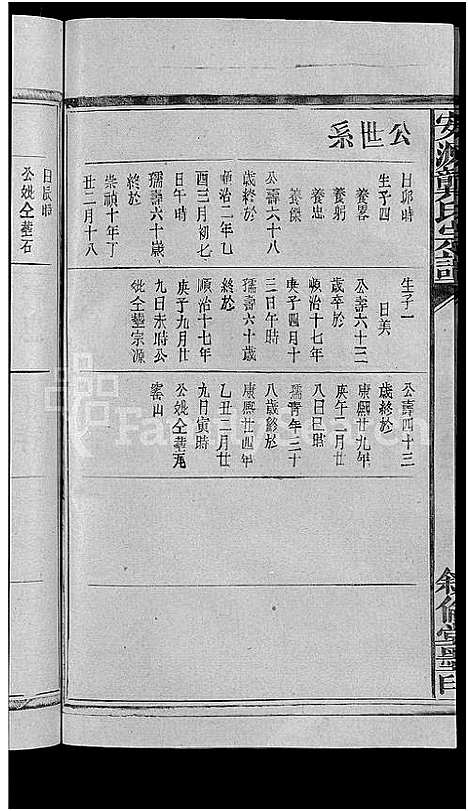 公世系
日卯時
生子四
養畧
養躬
養忠
養傑
公壽六十八
歲終於
順治二年乙
酉三月初七
日午時
孺壽六十歲
終於
崇禎十年丁
丑二月十八
生子一
日美
公壽六十三
歲卒於
順治十七年
庚子四月十
三日午時
孺壽六十歲
終於
順治十七年
庚子九月廿
九日未時公
妣仝塟宗源
公壽四十三
歲終於
康熙廿九年
庚午二月廿
八日巳時
孺青年三十
八歲終於
康熙廿四年
乙丑二月廿
九日寅時
公妣仝塟瓦
窰山
日辰時
公妣仝塟石
敘倫堂